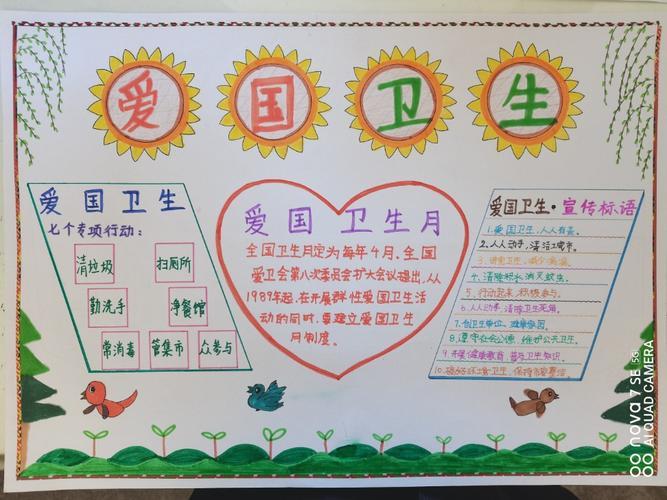 爱国卫生
爱国卫生
七个专项行动:
清垃圾 扫厕所
勤洗手 净餐馆
常消毒 管集市 众参与
爱国卫生月
全国卫生月定为每年4月,全国
爱卫会第八次委员会扩大会议提出,从
1989年起,在开展群众性爱国卫生活
动的同时,要建立爱国卫生
月制度。
爱国卫生·宣传标语
1.爱国卫生,人人有责。
2.人人动手,清洁城市。
4.清除积水 消灭蚊虫。
5.行动起来,积极参与。
6.人人动手,清除卫生死角。
7.创卫生单位,建健康校园。
8.遵守社会公德,维护公共卫生。
9.开展健康教育,普及卫生知识。
10.搞好环境卫生,保持市容整洁。
nova 7 SE 5G
AI QUAD CAMERA